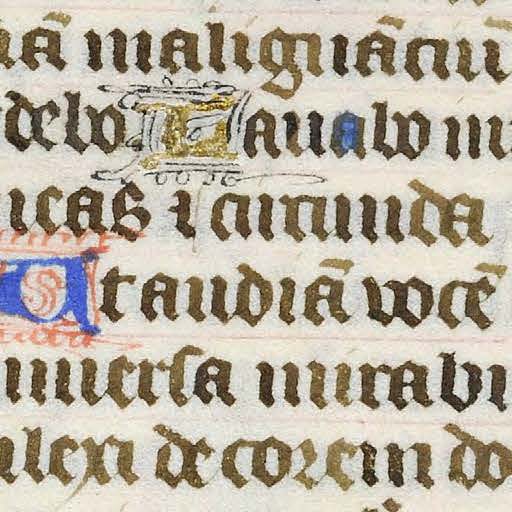 iā malignāciū
debo Lauabo in
meas ⁊ circumda
Ut audiā vocē
niuersa mirabi
ilexi decorem do